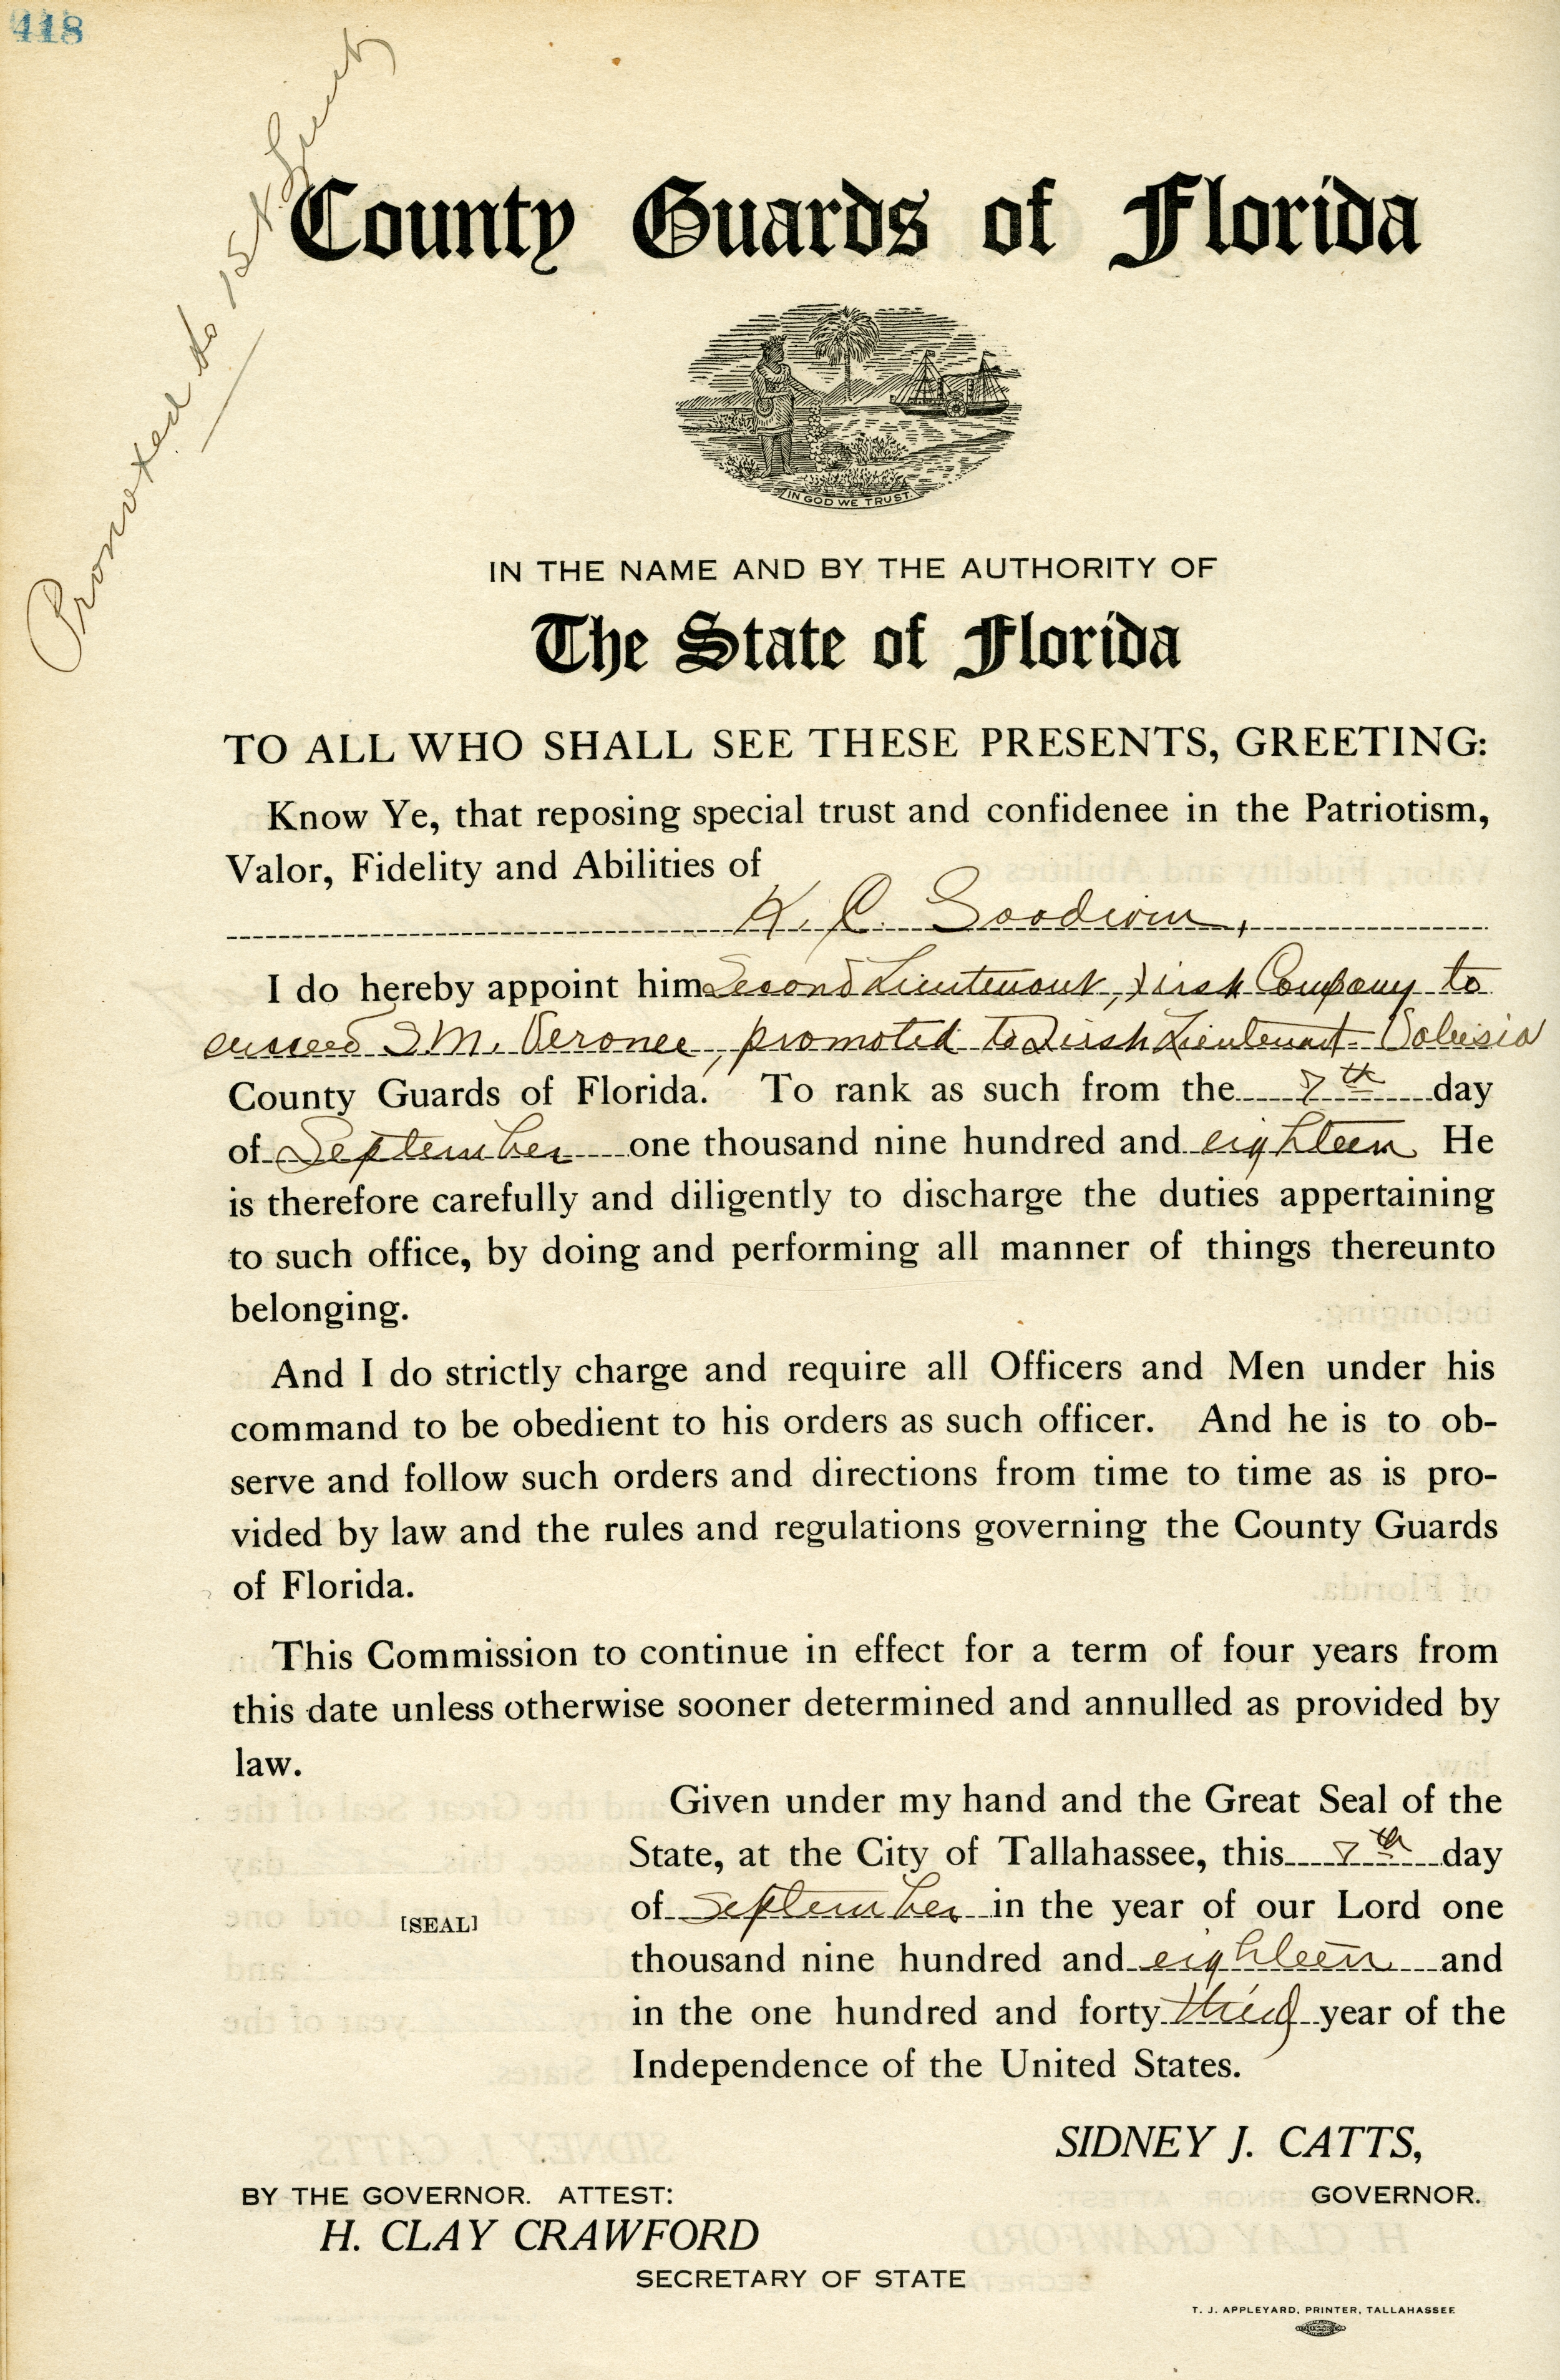 418
Promoted to 1st Lieut
County Guards of Florida
IN GOD WE TRUST.
IN THE NAME AND BY THE AUTHORITY OF
The State of Florida
TO ALL WHO SHALL SEE THESE PRESENTS, GREETING:
Know Ye, that reposing special trust and confidenee in the Patriotism,
Valor, Fidelity and Abilities of
K. C. Goodwin,
I do hereby appoint him Second Lieutenant, First Company to
succeed S.M. Veronee, promoted to First Lieutenant. Volusia
County Guards of Florida. To rank as such from the 7th day
of September one thousand nine hundred and eighteen He
is therefore carefully and diligently to discharge the duties appertaining
to such office, by doing and performing all manner of things thereunto
belonging.
And I do strictly charge and require all Officers and Men under his
command to be obedient to his orders as such officer. And he is to ob-
serve and follow such orders and directions from time to time as is pro-
vided by law and the rules and regulations governing the County Guards
of Florida.
This Commission to continue in effect for a term of four years from
this date unless otherwise sooner determined and annulled as provided by
law.
Given under my hand and the Great Seal of the
State, at the City of Tallahassee, this 7th day
of September in the year of our Lord one
[SEAL]
thousand nine hundred and eighteen and
in the one hundred and forty third year of the
Independence of the United States.
SIDNEY J. CATTS,
GOVERNOR.
BY THE GOVERNOR. ATTEST:
H. CLAY CRAWFORD
SECRETARY OF STATE
T. J. APPLEYARD, PRINTER, TALLAHASSEE